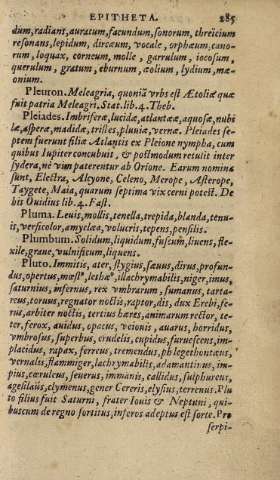 EPITHETA. 285
dum, radiant, auratum, facundum, sonorum, threicium
resonans, lepidum, dircæum, vocale, orphæum, cano-
rum, loquax, corneum, molle, garrulum, iocosum,
querulum, gratum, eburnum, æolium, lydium, mæ-
onium.
Pleuron. Meleagria, quoniã vrbs est Ætoliæ quæ
fuit patria Meleagri. Stat. lib. 4. Theb.
Pleiades. Imbriferæ, lucidæ, atlanteæ, aquosæ, nubi
læ, asperæ, madidæ, tristes, pluuiæ, vernæ. Pleiades se-
ptem fuerunt filiæ Atlantis ex Pleione nympha, cum
quibus Iupiter concubuit, & postmodum retulit inter
sydera, ne vim paterentur ab Orione. Earum nomina
sunt, Electra, Alcyone, Celæno, Merope, Asterope,
Taygete, Maia, quarum septima vix cerni potest. De
his Ouidius lib. 4. Fast.
Pluma. Leuis, mollis, tenella, trepida, blanda, tenu-
is, versicolor, amyclæa, volucris, tepens, pensilis.
Plumbum. Solidum, liquidum, fuscum, liuens, fle-
xile, graue, vulnificum, liquens.
Pluto. Immitis, ater, stygius, sæuus, dirus, profun-
dus, opertus, mœst⁹, lethæ⁹, illachrymabilis, niger, inuus,
saturnius, infernus, rex vmbrarum, sumanus, tarta-
reus, toruus, regnator noctis, raptor, dis, dux Erebi, fe-
rus, arbiter noctis, tertius hæres, animarum rector, te-
ter, ferox, auidus, opacus, veionis, auarus, horridus,
vmbrosus, superbus, crudelis, cupidus, furuescens, im-
placidus, rapax, ferreus, tremendus, phlegethontæus,
vernalis, flammiger, lachrymabilis, adamantinus, im-
pius, cæruleus, seuerus, immanis, callidus, sulphureus,
agesilaüs, clymenus, gener Cereris, elysius, terrenus. Plu
to filius fuit Saturni, frater Iouis & Neptuni, qui-
buscum de regno sortitus, inferos adeptus est sorte. Pro
serpi-